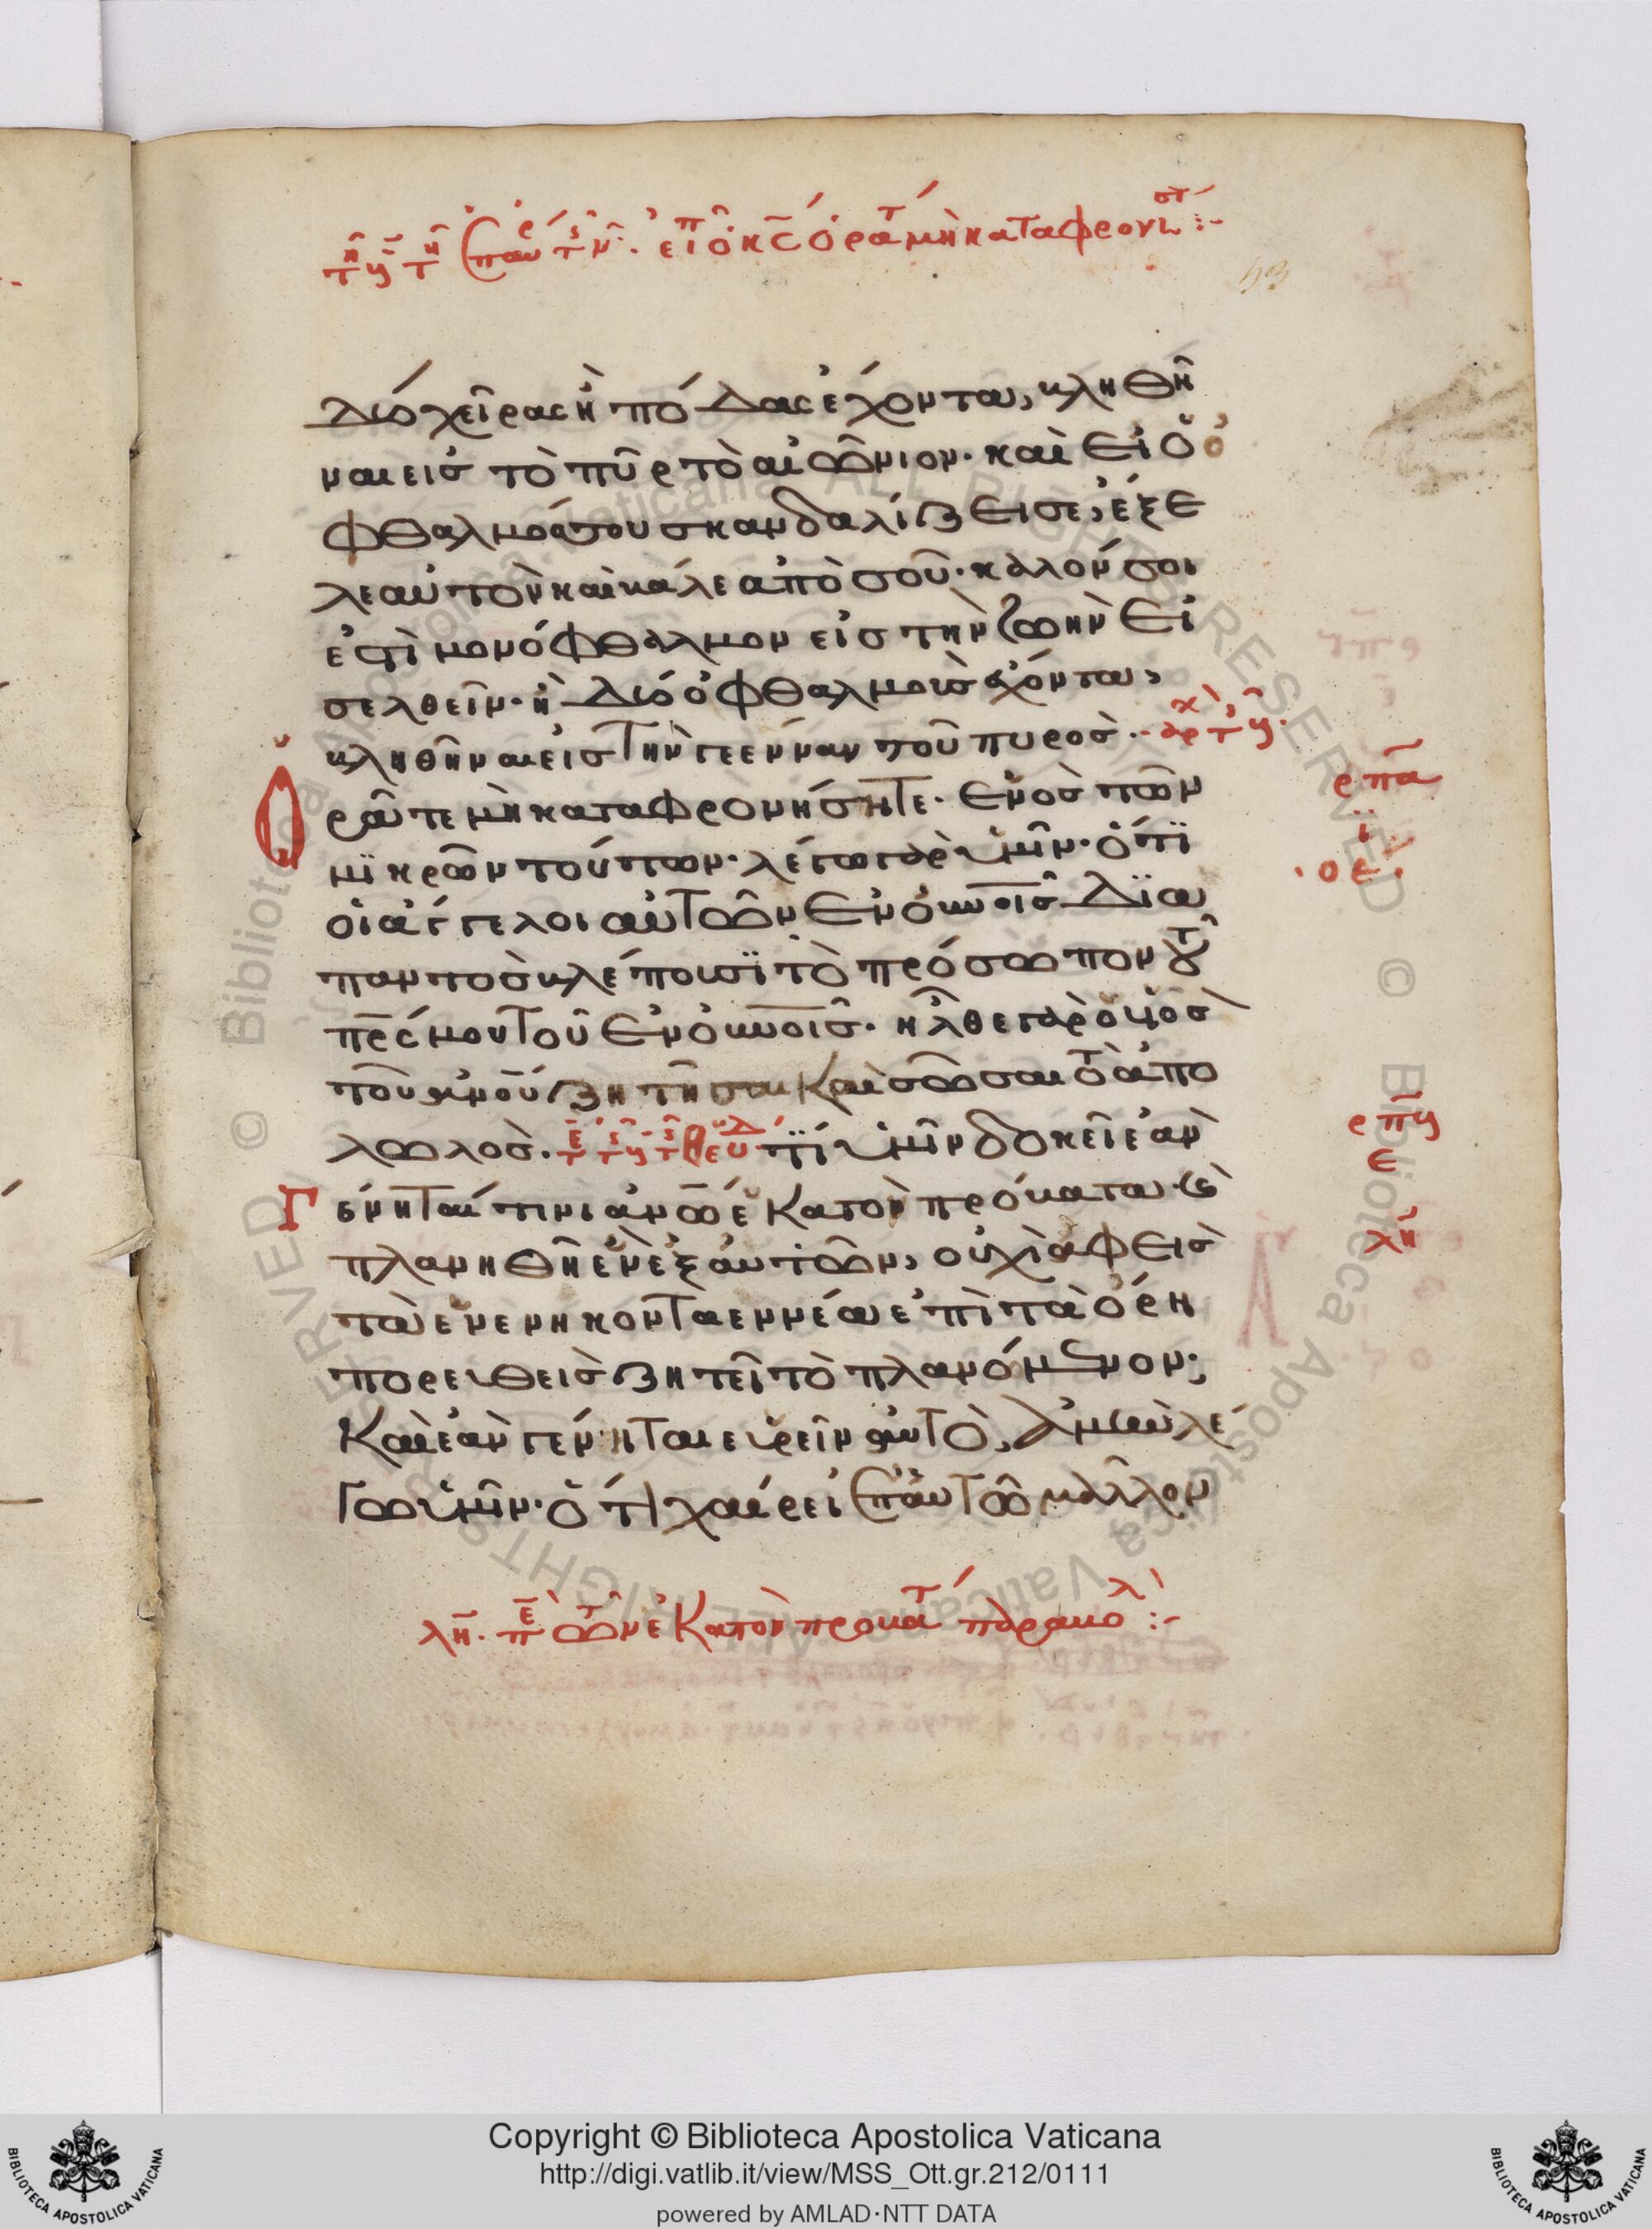 εἶπεν ὁ κς ὁρᾶτε μὴ καταφρονησητ :-
53
δύο χεῖρας ἢ πόδας ἔχοντα, βληθῆ
ναι εἰς τὸ πῦρ τὸ αἰώνιον· καὶ εἰ ὁ ὀ
φθαλμόσσου σκανδαλίζει σε, ἔξε
λε αὐτὸν καὶ βάλε ἀπὸ σοῦ· καλόν σοι
ἐστὶ μονόφθαλμον εἰς τὴν ζωὴν εἰ
σελθεῖν· ἢ δύο ὀφθαλμοὺς ἔχοντα,
βληθῆναι εἰς τὴν γεενναν τοῦ πυρος·
Ὁρᾶτε μὴ καταφρονήσητε· ἑνὸς τῶν
μϊκρῶν τούτων· λέγω γὰρ ὑμῖν· ὅτϊ
οἱ ἄγγελοι αὐτῶν ἐν οὐνοις δϊα
παντὸς βλέπουσϊ τὸ πρόσωπον τοῦ
πρς μου τοῦ ἐν οὐνοις· ἦλθε γὰρ ὁ υἱὸς
τοῦ ανου ζητῆσαι καὶ σῶσαι τὸ ἀπο
λωλος· τϊ ὑμῖν δοκεῖ ἐὰν
Γένηται τινι ανω ἑκατὸν πρόβατα· κ
πλανηθῆ ἓν ἐξ αὐτῶν, οὐχὶ ἀφεις
τὰ ἐνενηκονταεννέα ἐπὶ τὰ ὄρη
πορευθεις ζητεῖ τὸ πλανόμενον;
Καὶ ἐὰν γένηται εὑρεῖν αὐτὸ, ἀμὴν λέ
γω ὑμῖν· ὅτι χαίρει ἐπ αὐτῶ μᾶλλον
ρπα
ι
οε
ρπγ
ε
λη
λη· πε τῶν ἑκατὸν προβάτ παραβολ :-
Copyright © Biblioteca Apostolica Vaticana
http://digi.vatlib.it/view/MSS_Ott.gr.212/0111
powered by AMLAD·NTT DATA
BIBLIOTECA APOSTOLICA VATICANA
BIBLIOTECA APOSTOLICA VATICANA